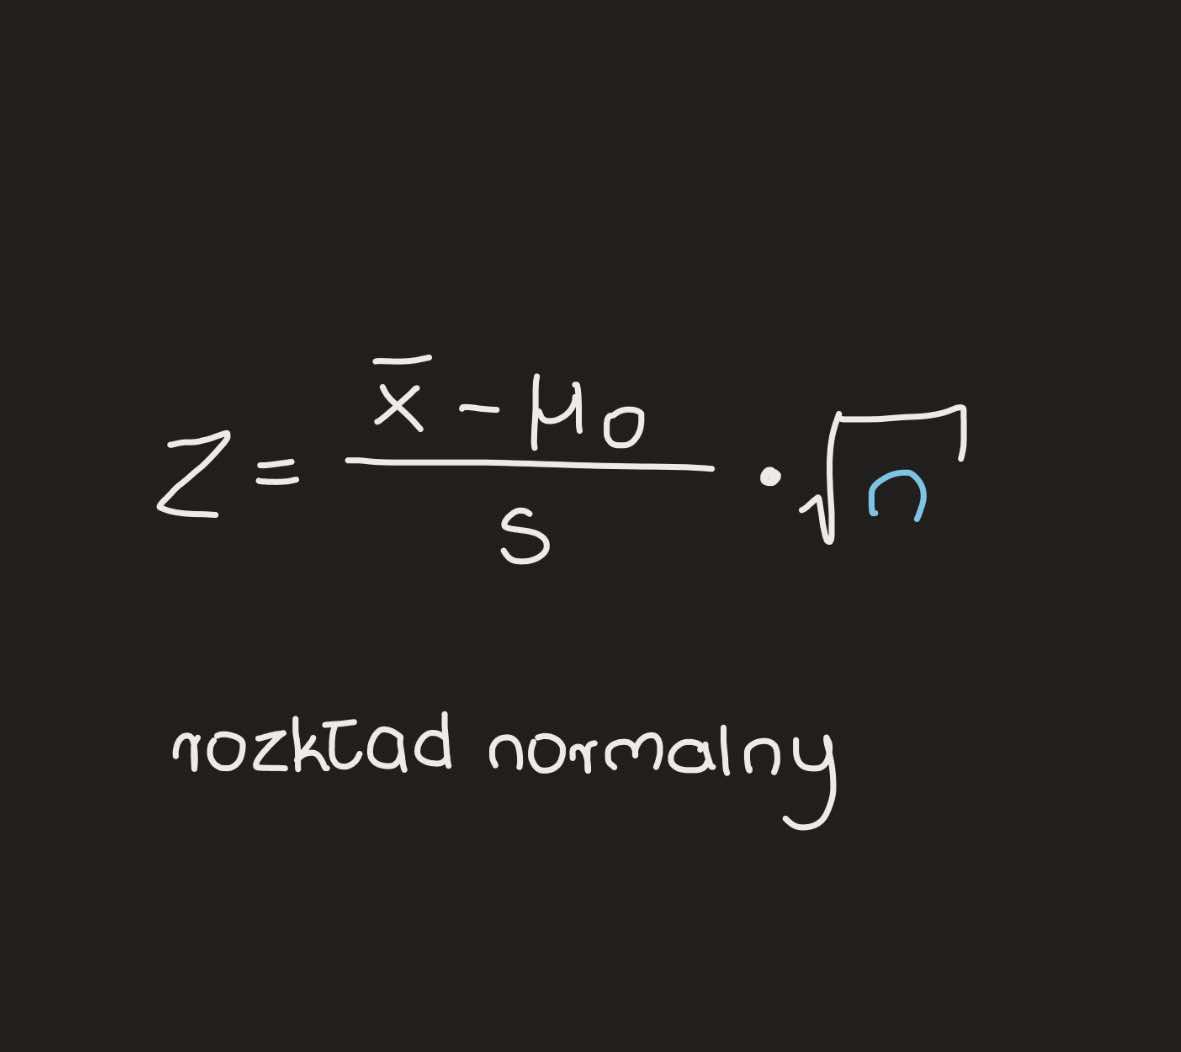 Z = \frac{\overline{x} - μ₀}{s} · √n
rozkład normalny